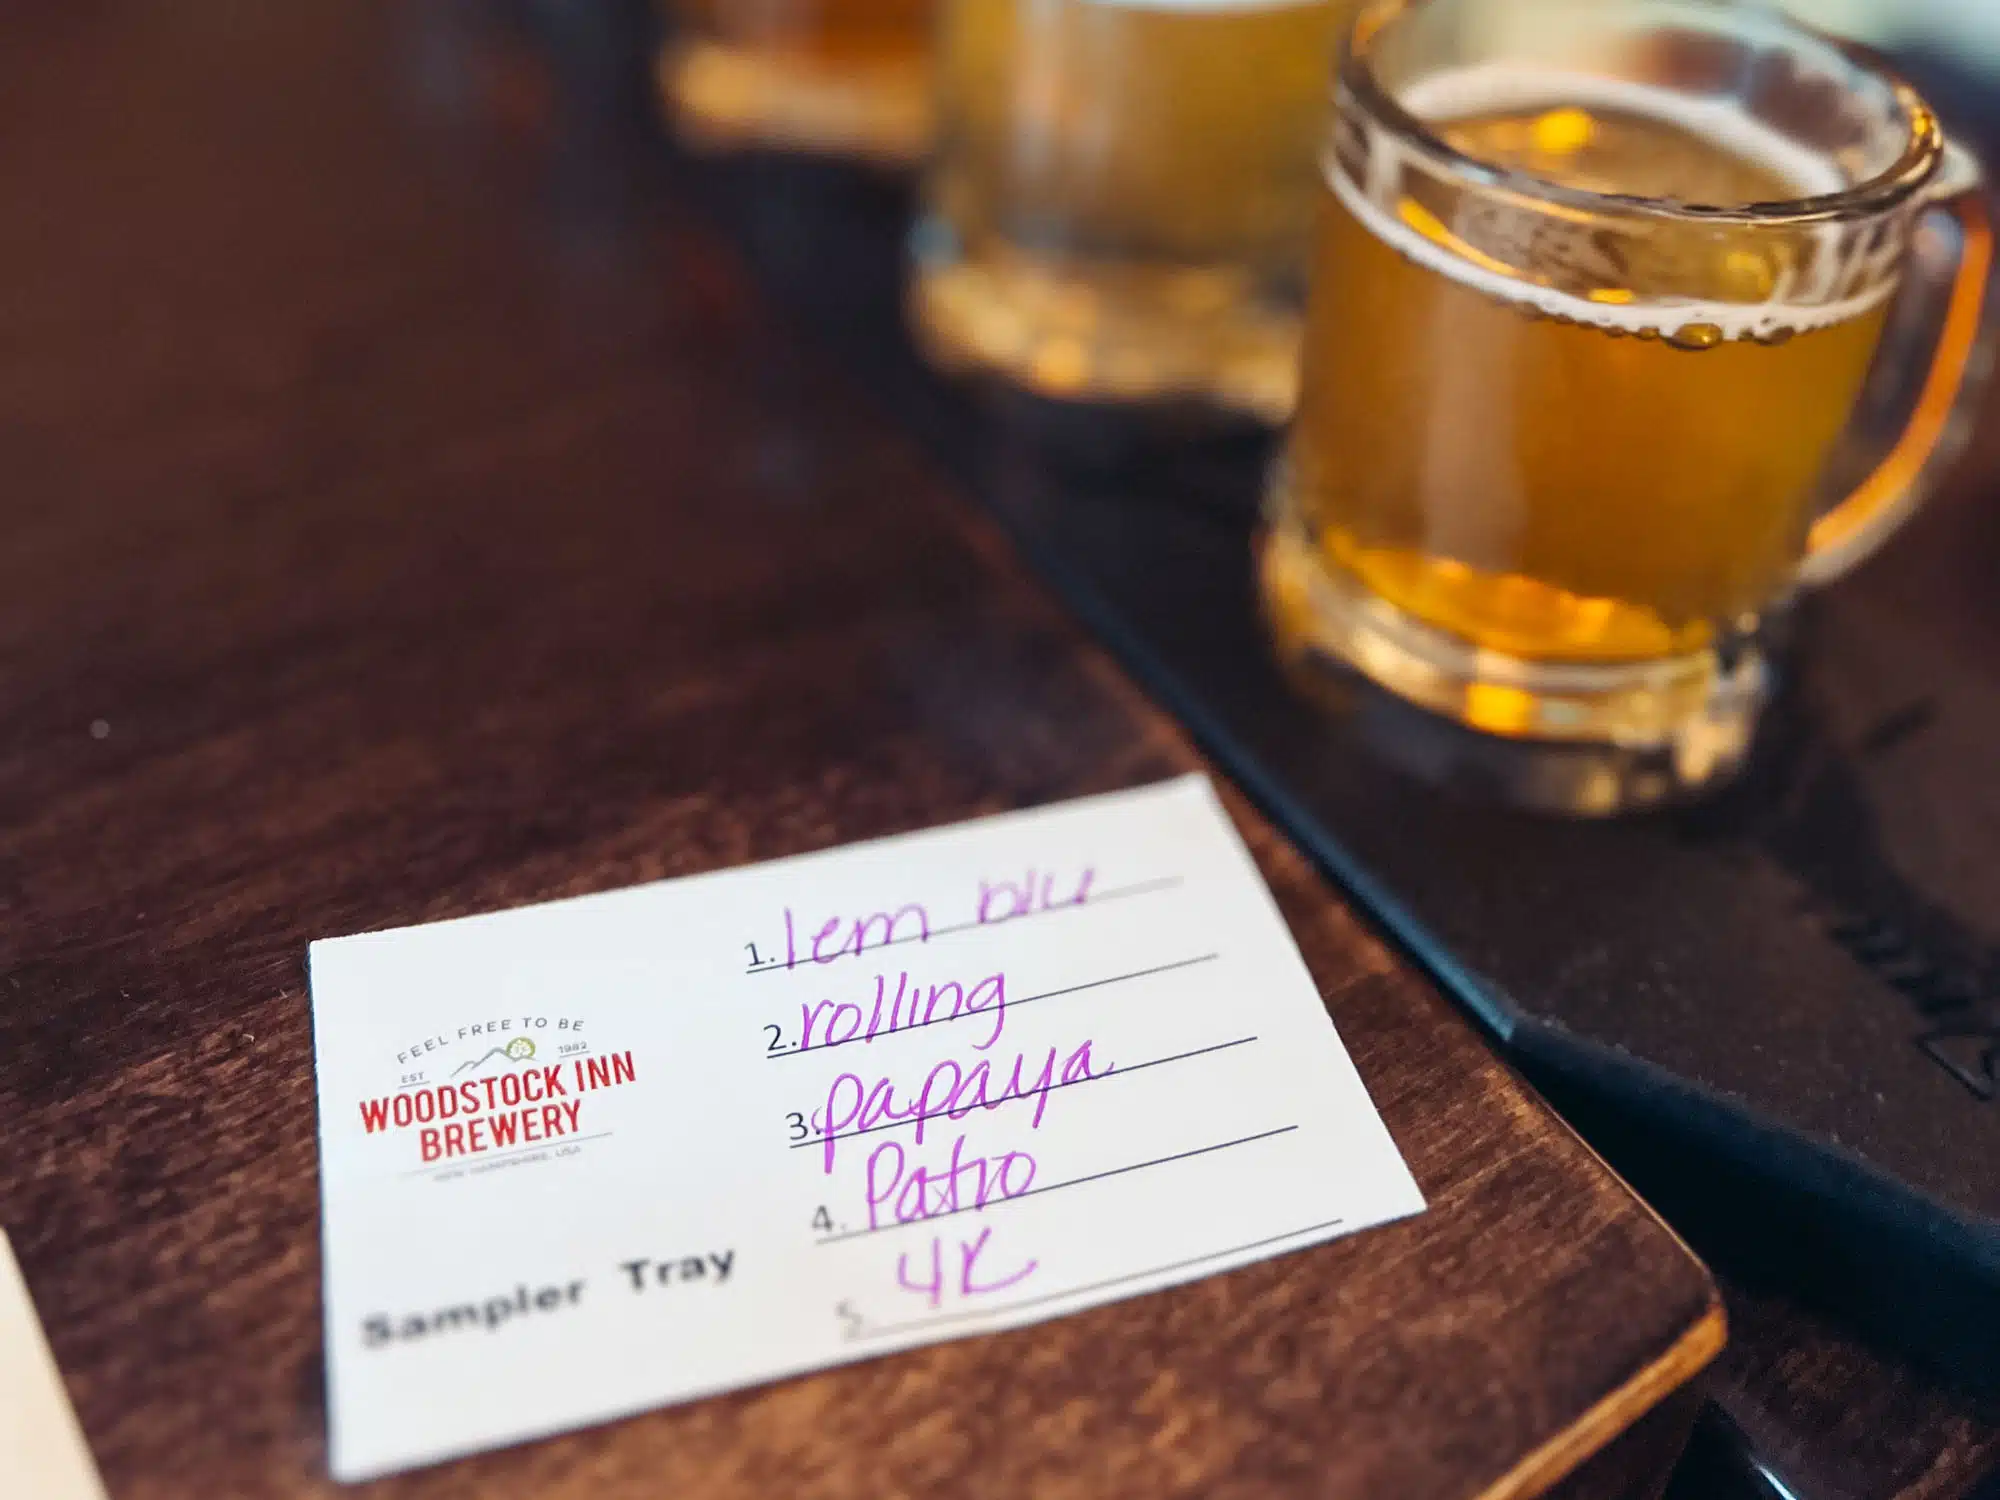 FEEL FREE TO BE
EST 1982
WOODSTOCK INN
BREWERY
NEW HAMPSHIRE, USA
Sampler Tray
1. lem blu
2. rolling
3. papaya
4. Patio
5. 4K